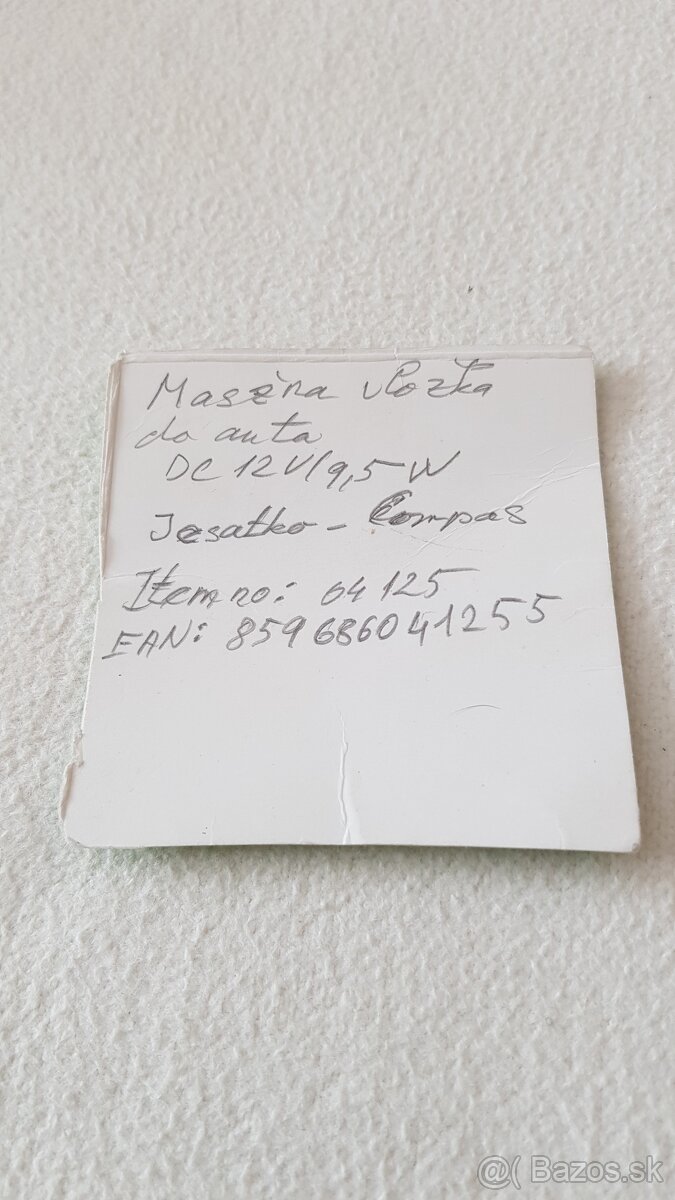 Maséna vložka
do auta
DC 12V/9,5 W
Jesatko - Compas
Item no: 04125
EAN: 8596860412555
@( Bazos.sk